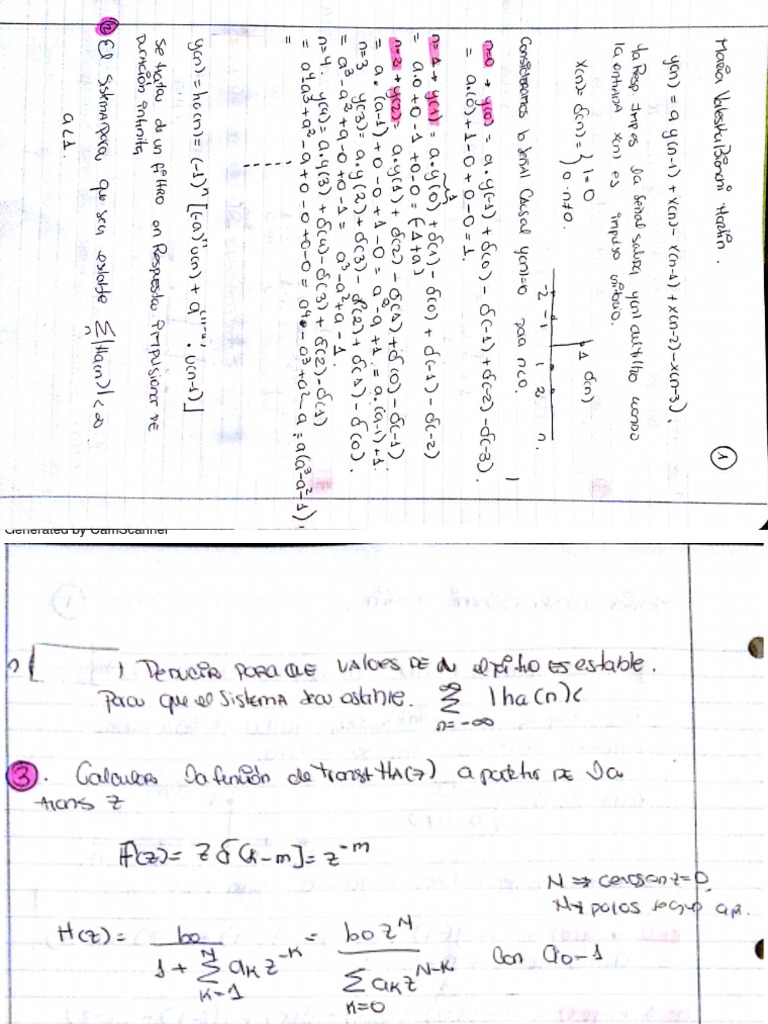 Maria Valesta Bianchi Martin.
1
y(n) = a y(n-1) + x(n) - x(n-1) + x(n-2) - x(n-3).
Ya Resp. Impes la señal salida y(n) del filtro cuando
la entrada x(n) es impulso unitario.
x(n) = δ(n) = { 1 = 0
0. n≠0.
1 δ(n)
-2 -1 1 2 n.
Consideramos la señal Causal y(n)=0 para n<0.
n=0 → y(0) = a.y(-1) + δ(0) - δ(-1) + δ(-2) - δ(-3).
= a.(0) + 1 - 0 + 0 - 0 = 1.
n=1 → y(1) = a.y(0) + δ(1) - δ(0) + δ(-1) - δ(-2)
= a.0 + 0 - 1 + 0.0 = (-1+a)
n=2 → y(2) = a.y(1) + δ(2) - δ(1) + δ(0) - δ(-1)
= a.(a-1) + 0 - 0 + 1 - 0 = a² - a + 1 = a.(a-1) + 1
n=3 y(3) = a.y(2) + δ(3) - δ(2) + δ(1) - δ(0).
= a³ - a² + a - 0 + 0 - 1 = a³ - a² + a - 1.
n=4. y(4) = a.y(3) + δ(4) - δ(3) + δ(2) - δ(1)
= a⁴ - a³ + a² - a + 0 - 0 + 0 - 0 = a⁴ - a³ + a² - a = a(a³-a²-1).
=
y(n) = ha(n) = (-1)ⁿ [(-a)ⁿ u(n) + a · u(n-1)]
Se trata de un filtro en Respuesta Impulsional de
duración infinita
2 El Sistema para que sea estable Σ|ha(n)| < ∞.
n
a<1.
Generated by CamScanner
) Deducir para que valores de a el filtro es estable.
Para que el Sistema sea estable. Σ |ha(n)<
∞
n=-∞
3. Calcular la función de transf HA(z) a partir de la
trans z
F(z) = z δ(k-m] = z^-m
N => ceros en z=0.
N→ polos
H(z) = b0 / 1 + Σ aK z^-K = b0 z^N / Σ aK z^N-K con a0-1
N
K=1
K=0